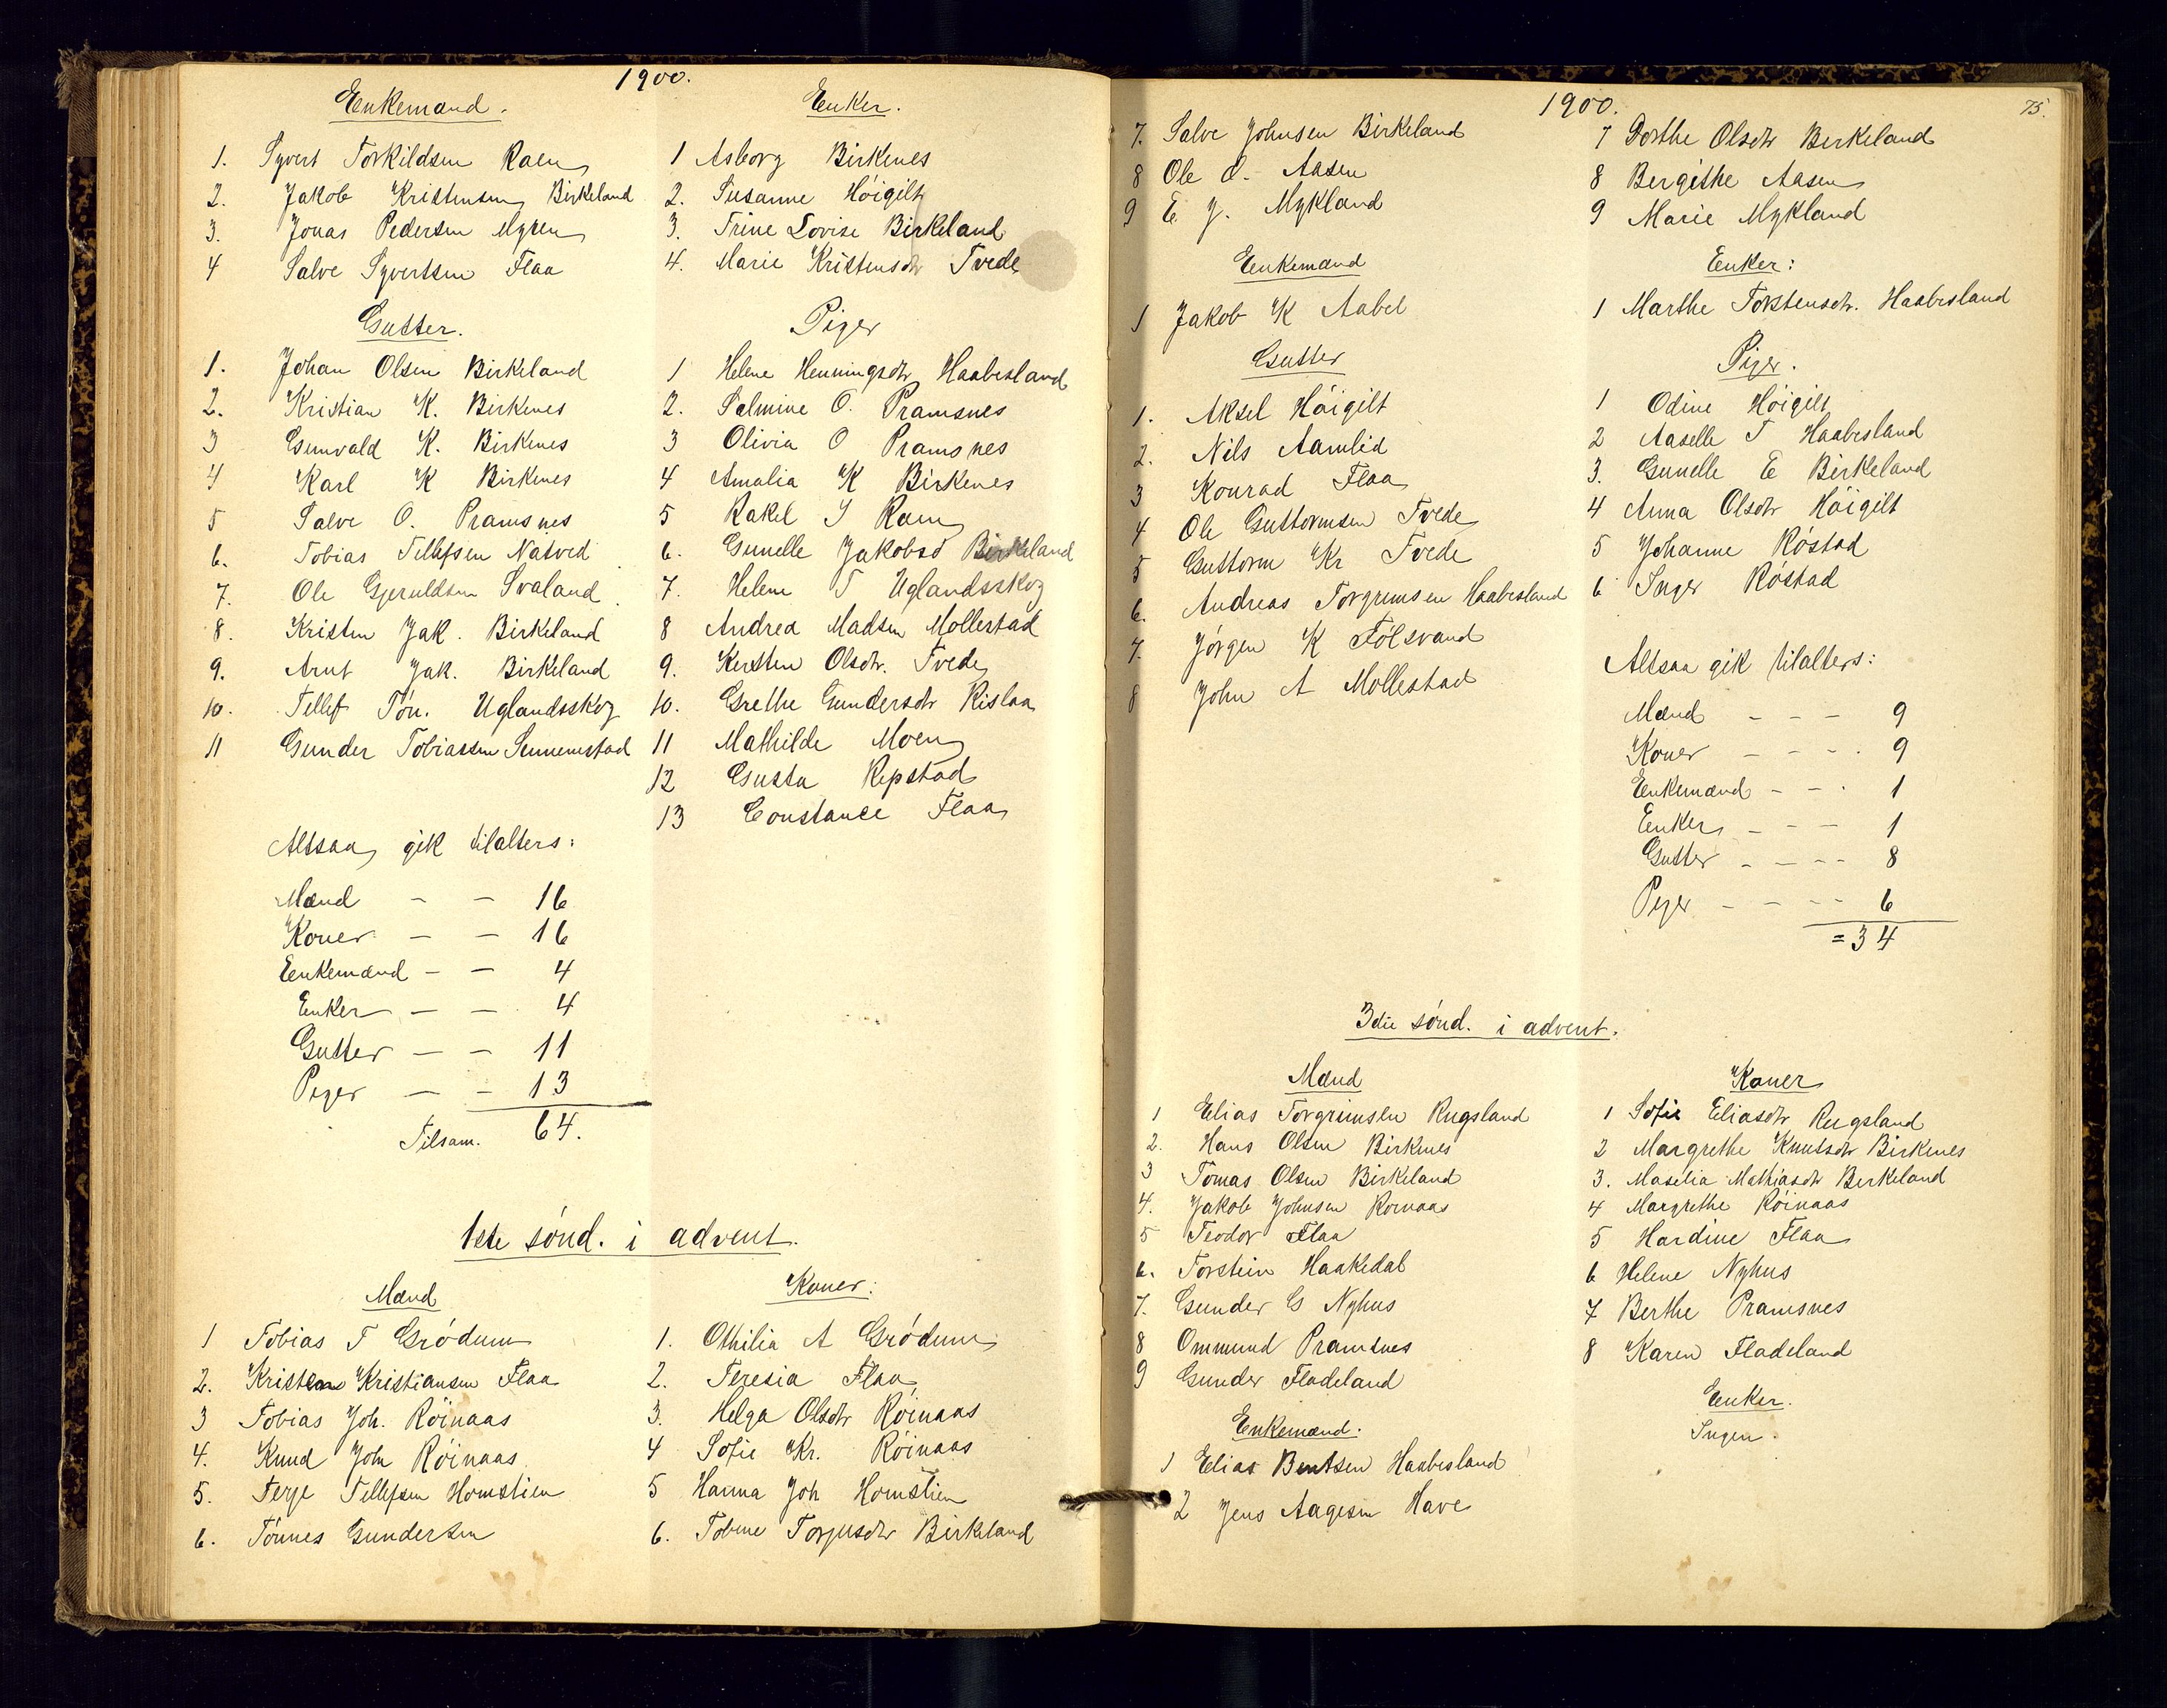 1900.
Enkemænd.
1. Syvert Torkildsen Raen
2. Jakob Kristensen Birkeland
3. Jonas Pedersen Myren
4 Salve Syvertsen Flaa
Gutter.
1. Johan Olsen Birkeland
2. Kristian K. Birkenes
3 Gunvald K. Birkenes
4 Karl K Birkenes
5 Salve O. Pramsnes
6. Tobias Tellefsen Natved
7. Ole Gjeruldsen Svaland
8. Kristen Jak. Birkeland
9. Arnt Jak. Birkeland
10. Tellef Tön. Uglandsskog
11 Gunder Tobiassen Sennumstad
Altsaa gik tilalters:
Mænd - - 16
Koner - - 16
Enkemænd - - 4
Enker - - 4
Gutter - - 11
Piger - - 13
Tilsam. 64.
Enker.
1 Asborg Birkenes
2. Susanne Höigilt
3. Trine Lovise Birkeland
4. Marie Kristensdtr Tvede
Piger
1 Helene Henningsdtr Haabesland
2. Salmine O. Pramsnes
3 Olivia O Pramsnes
4 Amalia K Birkenes
5 Rakel S Raen
6. Gunelle Jakobsd Birkeland
7. Helene T Uglandsskog
8 Andrea Madsen Mollestad
9. Kersten Olsdtr. Tvede
10. Grethe Gundersdtr Rislaa
11 Mathilde Moen
12 Gusta Repstad
13 Constance Flaa
1ste sönd. i advent.
Mænd
1 Tobias T Grödum
2. Kristen Kristiansen Flaa
3 Tobias Joh. Röinaas
4. Knud John Röinaas
5. Terje Tellefsen Homstien
6. Tönnes Gundersen
Koner:
1. Othilia A Grödum
2. Teresia Flaa
3. Helga Olsdtr Röinaas
4 Sofie Kr. Röinaas
5 Hanna Joh Homstien
6. Tobine Torjusdtr Birkeland
1900.
75.
7. Salve Johnsen Birkeland
8 Ole O. Aasen
9 E J. Mykland
Enkemænd
1 Jakob K Aabel
Gutter
1. Aksel Höigilt
2. Nils Aamlid
3 Konrad Flaa
4 Ole Guttormsen Tvede
5 Guttorm Kr Tvede
6. Andreas Torgrimsen Haabesland
7. Jörgen K Fölsvand
8 John A Mollestad
7 Dorthe Olsdtr Berkeland
8 Bergithe Aasen
9 Marie Mykland
Enker:
1 Marthe Torstensdtr. Haabesland
Piger.
1 Odine Höigilt
2 Aaselle T Haabesland
3. Gunelle E Birkeland
4 Anna Olsdtr Höigilt
5 Johanne Röstad
6 Inger Röstad
Altsaa gik tilalters:
Mænd - - - 9
Koner - - - - 9
Enkemænd - - - 1
Enker - - - 1
Gutter - - - - 8
Piger - - - - 6
= 34
3die sönd. i advent.
Mænd
1 Elias Torgrimsen Rugsland
2. Hans Olsen Birkenes
3 Tomas Olsen Birkeland
4. Jakob Johnsen Roinaas
5 Teodor Flaa
6. Torstein Haakedal
7. Gunder G Nyhus
8 Ommund Pramsnes
9 Gunder Fladeland
Enkemænd:
1 Elias Bentsen Haabesland
2 Jens Aagesen Have
Koner
1 Sofie Eliasdtr Rugsland
2 Margrethe Knutsdtr Birkenes
3. Maselia Mathiasdtr Berkeland
4 Margrethe Röinaas
5 Hardine Flaa
6 Helene Nyhus
7 Berthe Pramsnes
8 Karen Fladeland
Enker.
Ingen.